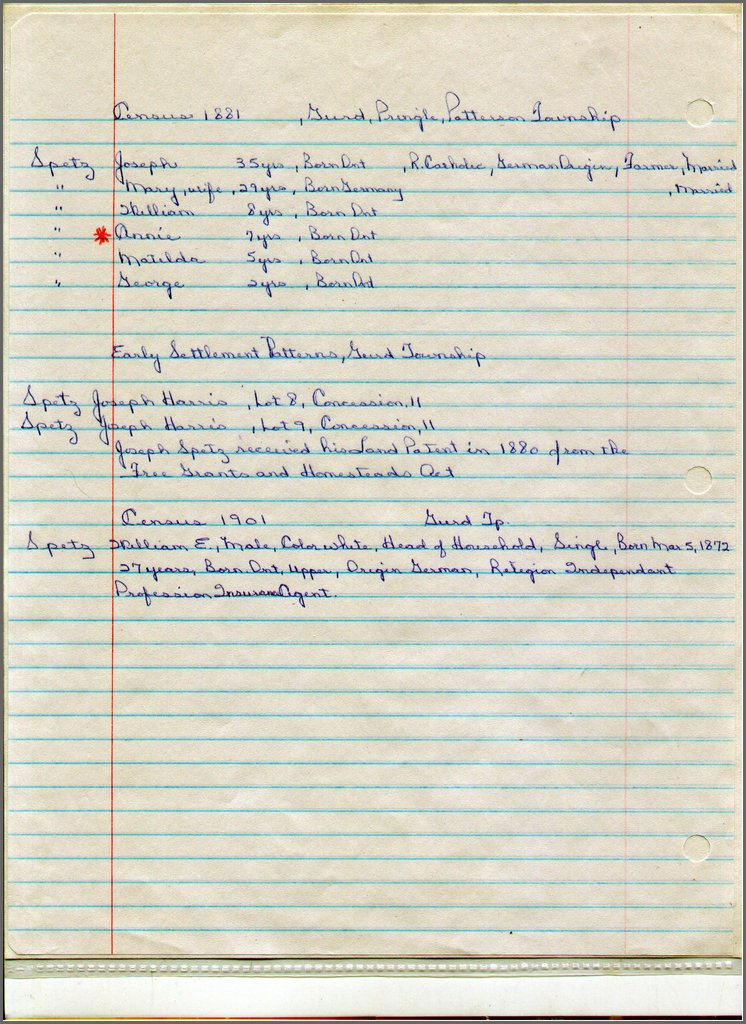 Census 1881 , Gurd, Pringle, Patterson Township
Spetz Joseph 35yrs , Born Ont , R. Catholic, German Origin, Farmer, Married
" Mary, wife , 29yrs, Born Germany , Married
" William 8yrs , Born Ont
" * Annie 7yrs , Born Ont
" Matilda 5yrs , Born Ont
" George 2yrs , Born Ont
Early Settlement Patterns, Gurd Township
Spetz Joseph Harris , Lot 8, Concession, 11
Spetz Joseph Harris , Lot 9, Concession, 11
Joseph Spetz received his Land Patent in 1880 from the
Free Grants and Homesteads Act
Census 1901 Gurd Tp.
Spetz William E., Male, Color white, Head of Household, Single, Born Mar 5, 1872
27 years, Born Ont, Upper, Origin German, Retegion Independant
Profession Insurance Agent.